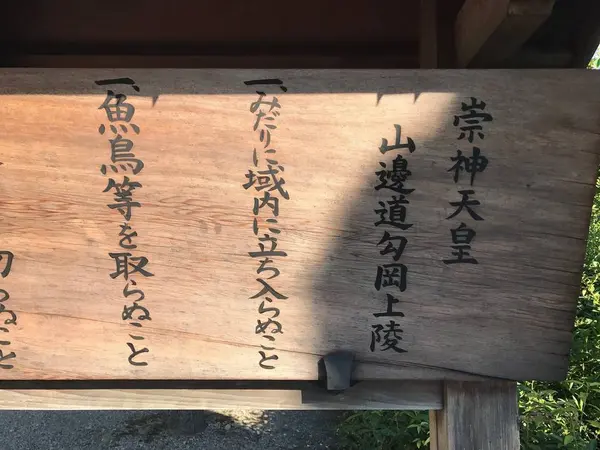 崇神天皇
山邊道勾岡上陵
一、みだりに域内に立ち入らぬこと
一、魚鳥等を取らぬこと
切らぬこと